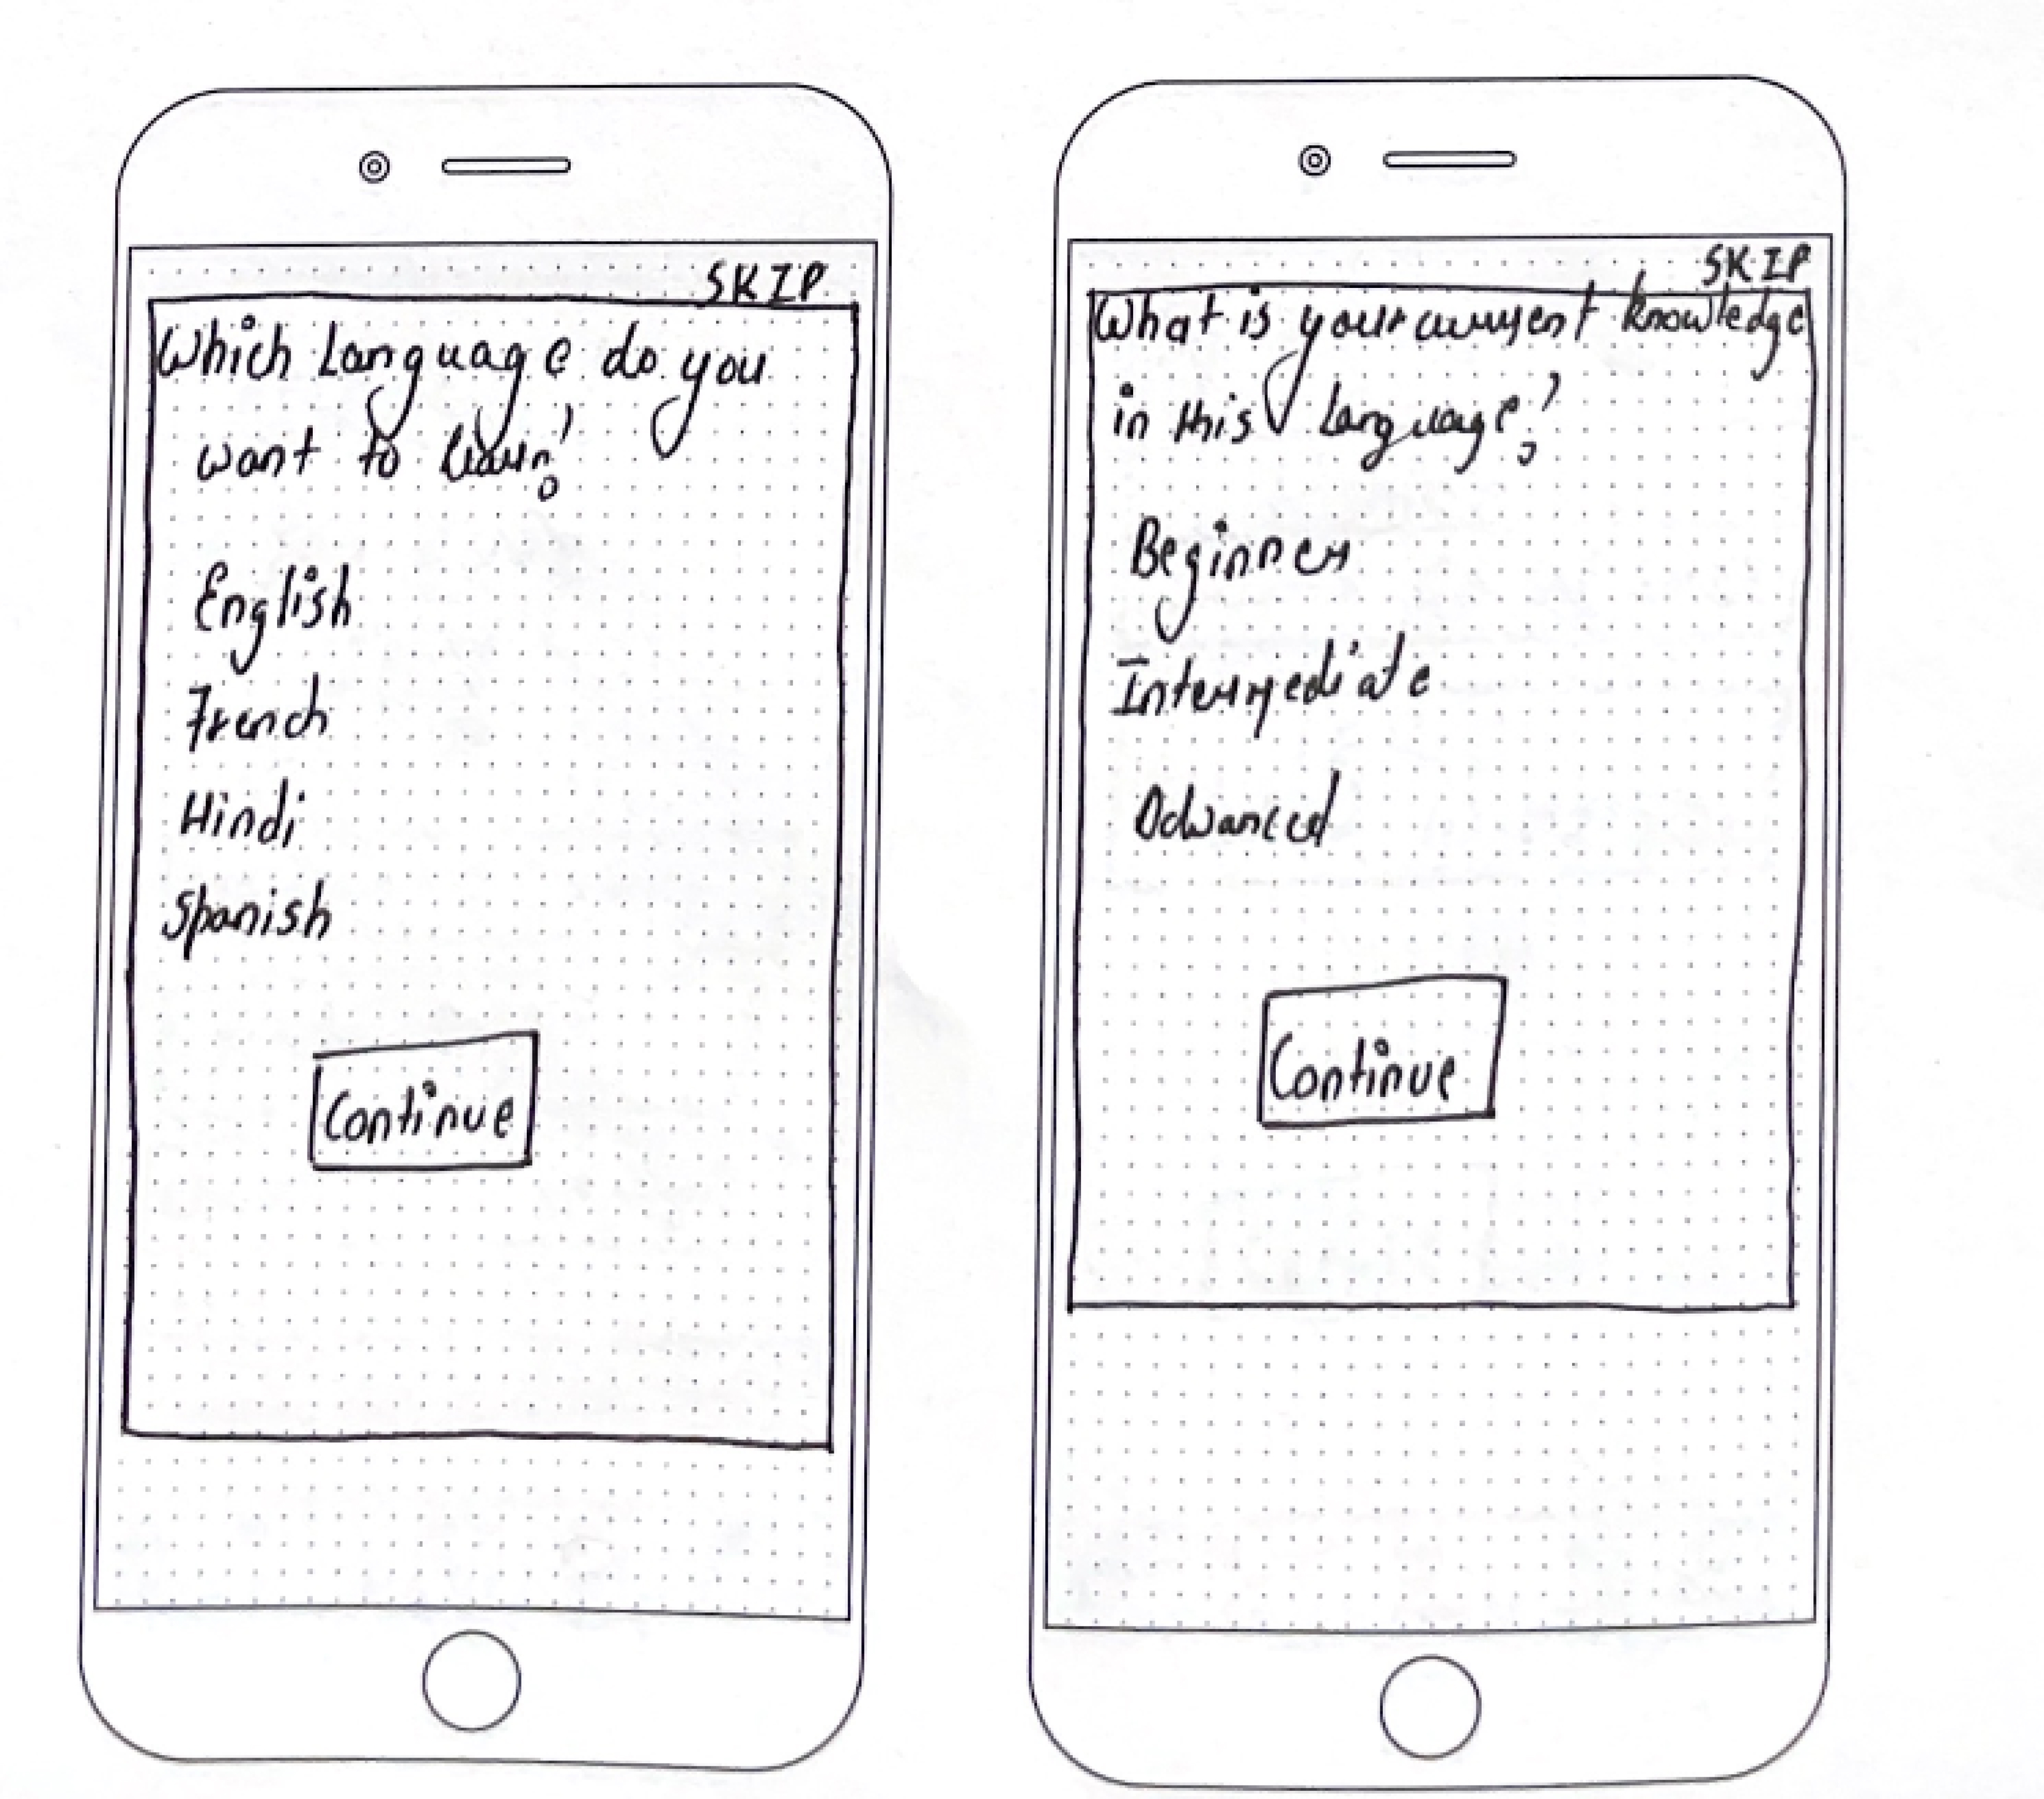 SKIP
Which Language do you
want to learn?
English
French
Hindi
Spanish
Continue
SKIP
What is your current knowledge
in this language?
Beginner
Intermediate
Advanced
Continue